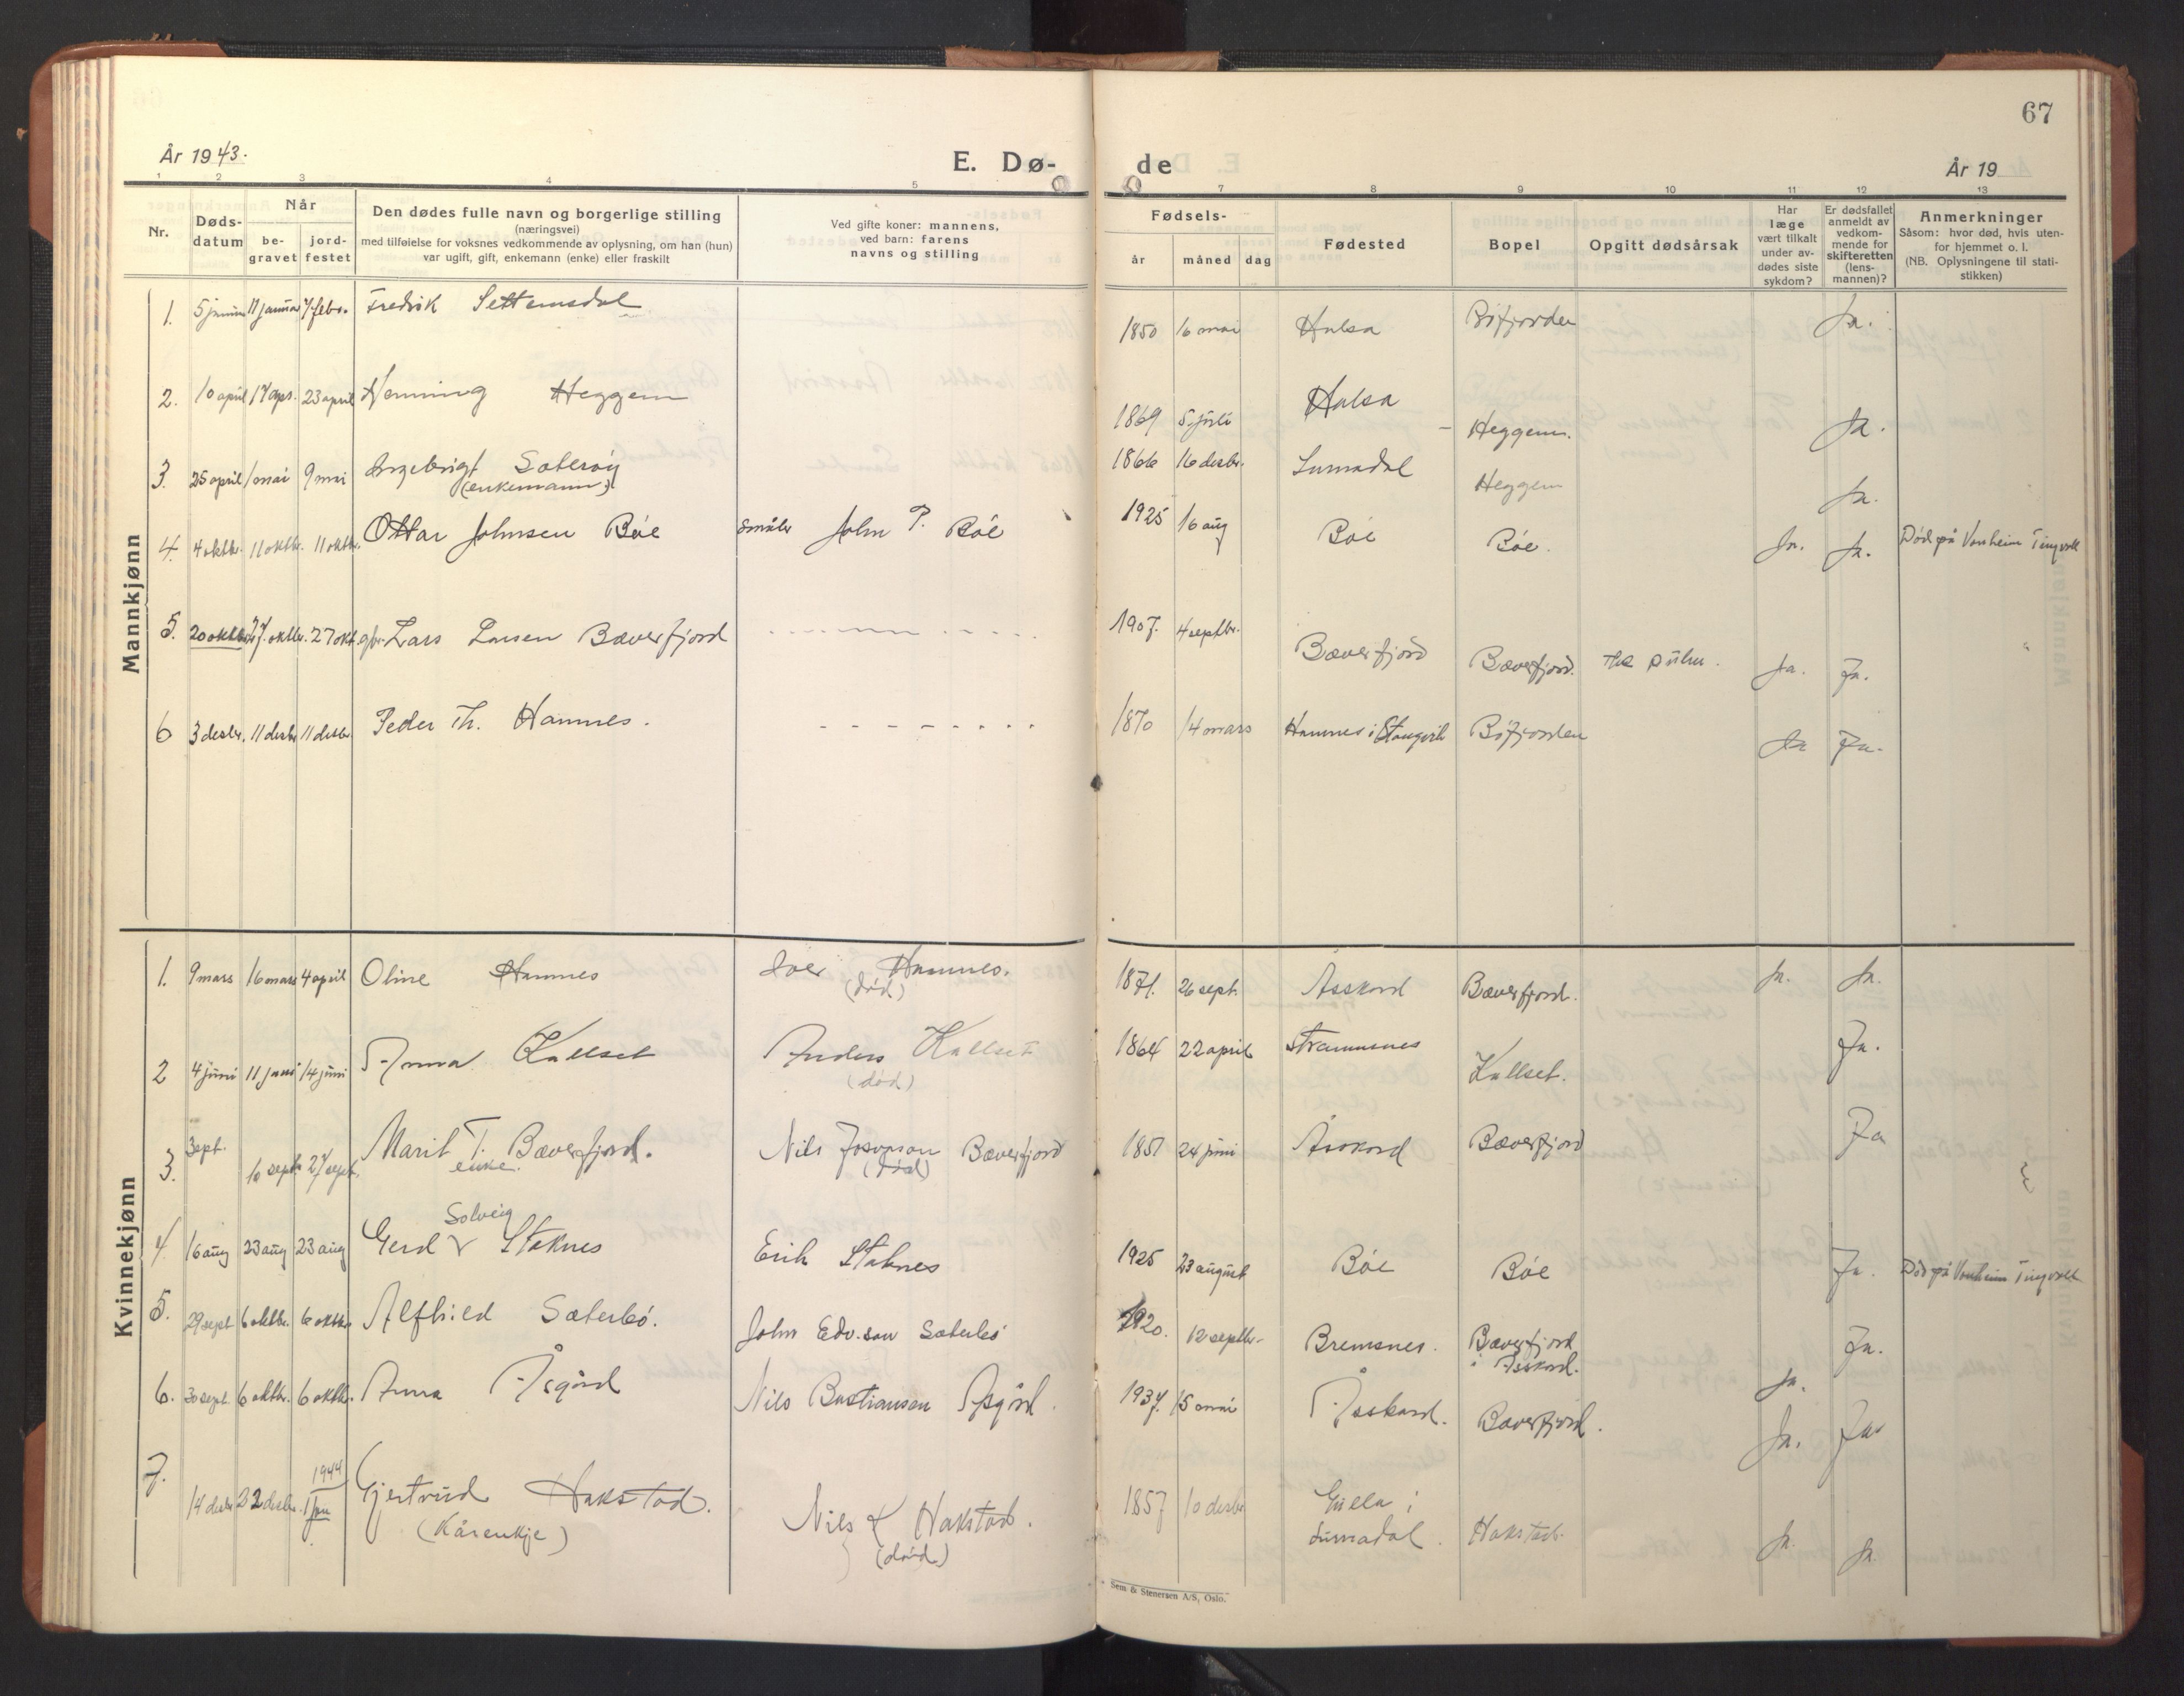 67
År 1943.
E. Dø-
de
År 19
1 2 3 4 5
7 8 9 10 11 12 13
Nr.
Døds-
datum
Når
be-
gravet
jord-
festet
Den dødes fulle navn og borgerlige stilling
(næringsvei)
med tilføielse for voksnes vedkommende av oplysning, om han (hun)
var ugift, gift, enkemann (enke) eller fraskilt
Ved gifte koner: mannens,
ved barn: farens
navns og stilling
Fødsels-
år måned dag
Fødested
Bopel
Opgitt dødsårsak
Har
læge
vært tilkalt
under av-
dødes siste
sykdom?
Er dødsfallet
anmeldt av
vedkom-
mende for
skifteretten
(lens-
mannen)?
Anmerkninger
Såsom: hvor død, hvis uten-
for hjemmet o. l.
(NB. Oplysningene til stati-
stikken)
Mannkjønn
1. 5 januar 11 januar 7. febr. Fredrik Settemsdal 1850 16 mai Halsa Böfjorden Ja.
2. 10 april 17 apr. 23 april Henning Heggem 1869 5 juli Halsa Heggem. Ja.
3. 25 april 1 mai 9 mai Ingebrigt Säterøy
(enkemann) 1866 16 desbr. Surnadal Heggem Ja.
4. 4 oktbr. 11 oktbr. 11 oktbr. Ottar Johnsen Bøe småbr John P. Bøe 1925 16 aug Bøe Bøe. Ja. Ja. Död på Vonheim Tingvoll
5. 20 oktbr. 27. oktbr. 27 okt gbr. Lars Larsen Bæverfjord 1907. 4 septbr. Bæverfjord Bæverfjord. Ja. Ja.
6 3 desbr. 11 desbr 11 desbr. Peder Th. Hamnes. 1870 14 mars Hamnes i Stangvik Böfjorden Ja Ja.
Kvinnekjønn
1. 9 mars 16 mars 4 april Oline Hamnes Iver Hamnes.
(död) 1871. 26 sept. Åsskard Bæverfjord. Ja. Ja.
2 4 juni 11 juni 14 juni Anna Kallset Anders Kallset
(död) 1864 22 april Straumsnes Kallset. Ja.
3. sept. 10 septr 27 sept. Marit T. Bæverfjord.
enke. Nils Bæverfjord
(död) 1851 24 juni Åsskard Bæverfjord Ja
4. 16 aug 23 aug 23 aug Gerd Solveig Stoknes Erik Stoknes 1925 23 august Bøe Bøe Ja. Död på Vonheim Tingvoll
5. 29 sept 6 oktbr. 6 oktbr. Alfhild Sæterbö. John Edv.son Sæterbö 1920. 12 septbr. Bremsnes. Bæverfjord
i Åsskard. Ja. Ja.
6. 30 sept. 6 oktbr. 6 oktbr. Anna Åsgård Nils Bastiansen Åsgård. 1937. 15 mai Åsskard. Bæverfjord. Ja. Ja
7. 14 desbr 22 desbr. 1944
1 jan. Gjertrud Hakstad.
(Kårenkje) Nils Hakstad.
(död) 1857 10 desbr i
Surnadal. Hakstad. Ja. Ja.
Sem & Stenersen A/S, Oslo.